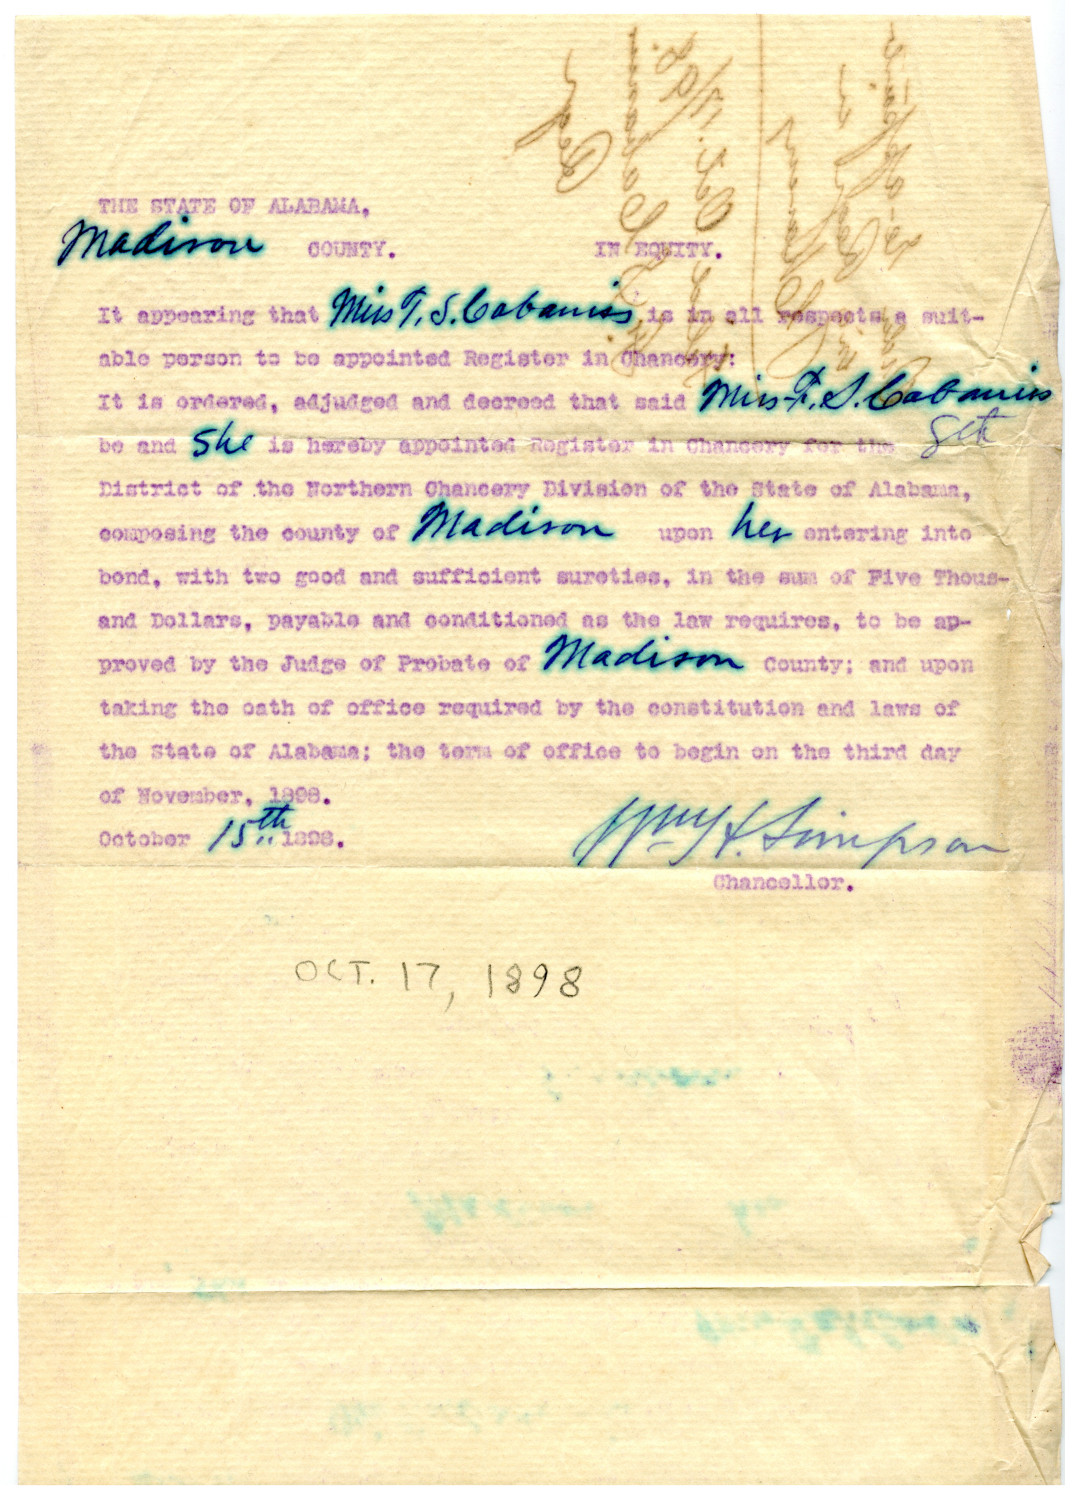 THE STATE OF ALABAMA,
Madison COUNTY. IN EQUITY.
It appearing that Miss T. S. Cabaniss is in all respects a suit-
able person to be appointed Register in Chancery:
It is ordered, adjudged and decreed that said Miss F. S. Cabaniss
be and She is hereby appointed Register in Chancery for the 8th
District of the Northern Chancery Division of the State of Alabama,
composing the county of Madison upon her entering into
bond, with two good and sufficient sureties, in the sum of Five Thous-
and Dollars, payable and conditioned as the law requires, to be ap-
proved by the Judge of Probate of Madison County; and upon
taking the oath of office required by the constitution and laws of
the State of Alabama; the term of office to begin on the third day
of November, 1898.
October 15th 1898. Wm. H. Simpson
Chancellor.
OCT. 17, 1898